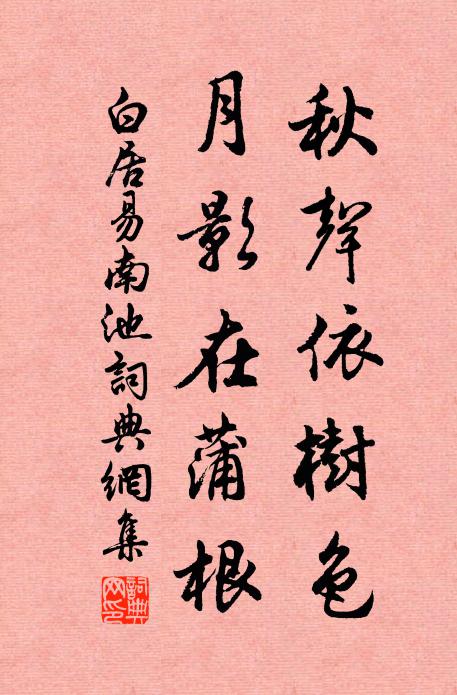 秋聲依樹色
月影在蒲根
白居易南池詞典網集
詞典
网印